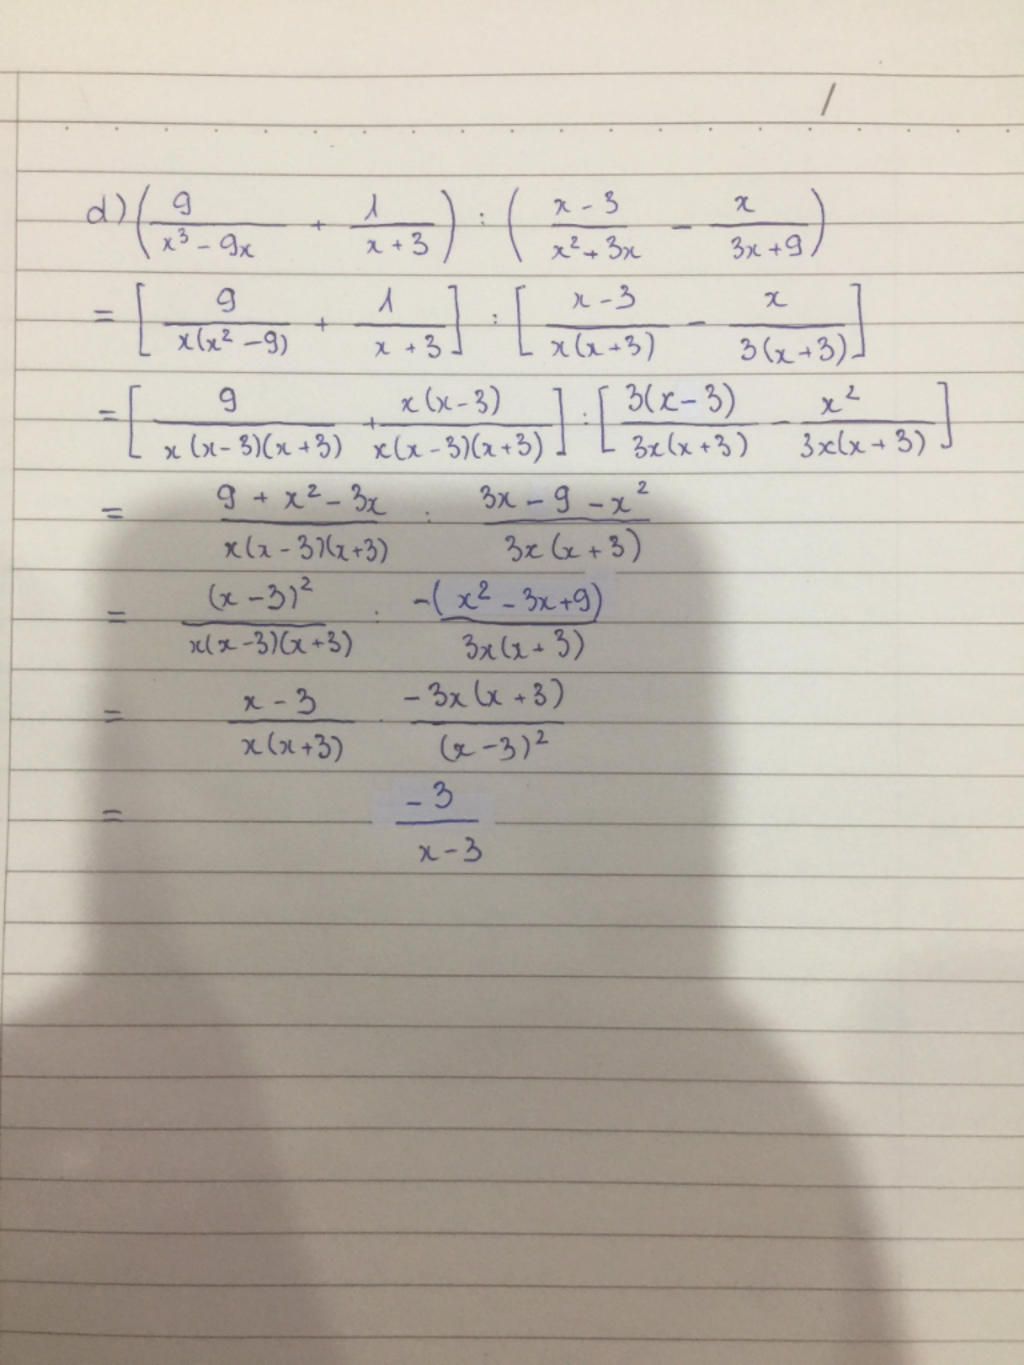 d) (9/(x³ - 9x) + 1/(x + 3)) : ((x - 3)/(x² + 3x) - x/(3x + 9))
= [9/(x(x² - 9)) + 1/(x + 3)] : [(x - 3)/(x(x + 3)) - x/(3(x + 3))]
= [9/(x(x - 3)(x + 3)) + x(x - 3)/(x(x - 3)(x + 3))] : [3(x - 3)/(3x(x + 3)) - x²/(3x(x + 3))]
= (9 + x² - 3x)/(x(x - 3)(x + 3)) : (3x - 9 - x²)/(3x(x + 3))
= (x - 3)²/(x(x - 3)(x + 3)) : -(x² - 3x + 9)/(3x(x + 3))
= (x - 3)/(x(x + 3)) . -3x(x + 3)/(x - 3)²
= -3/(x - 3)